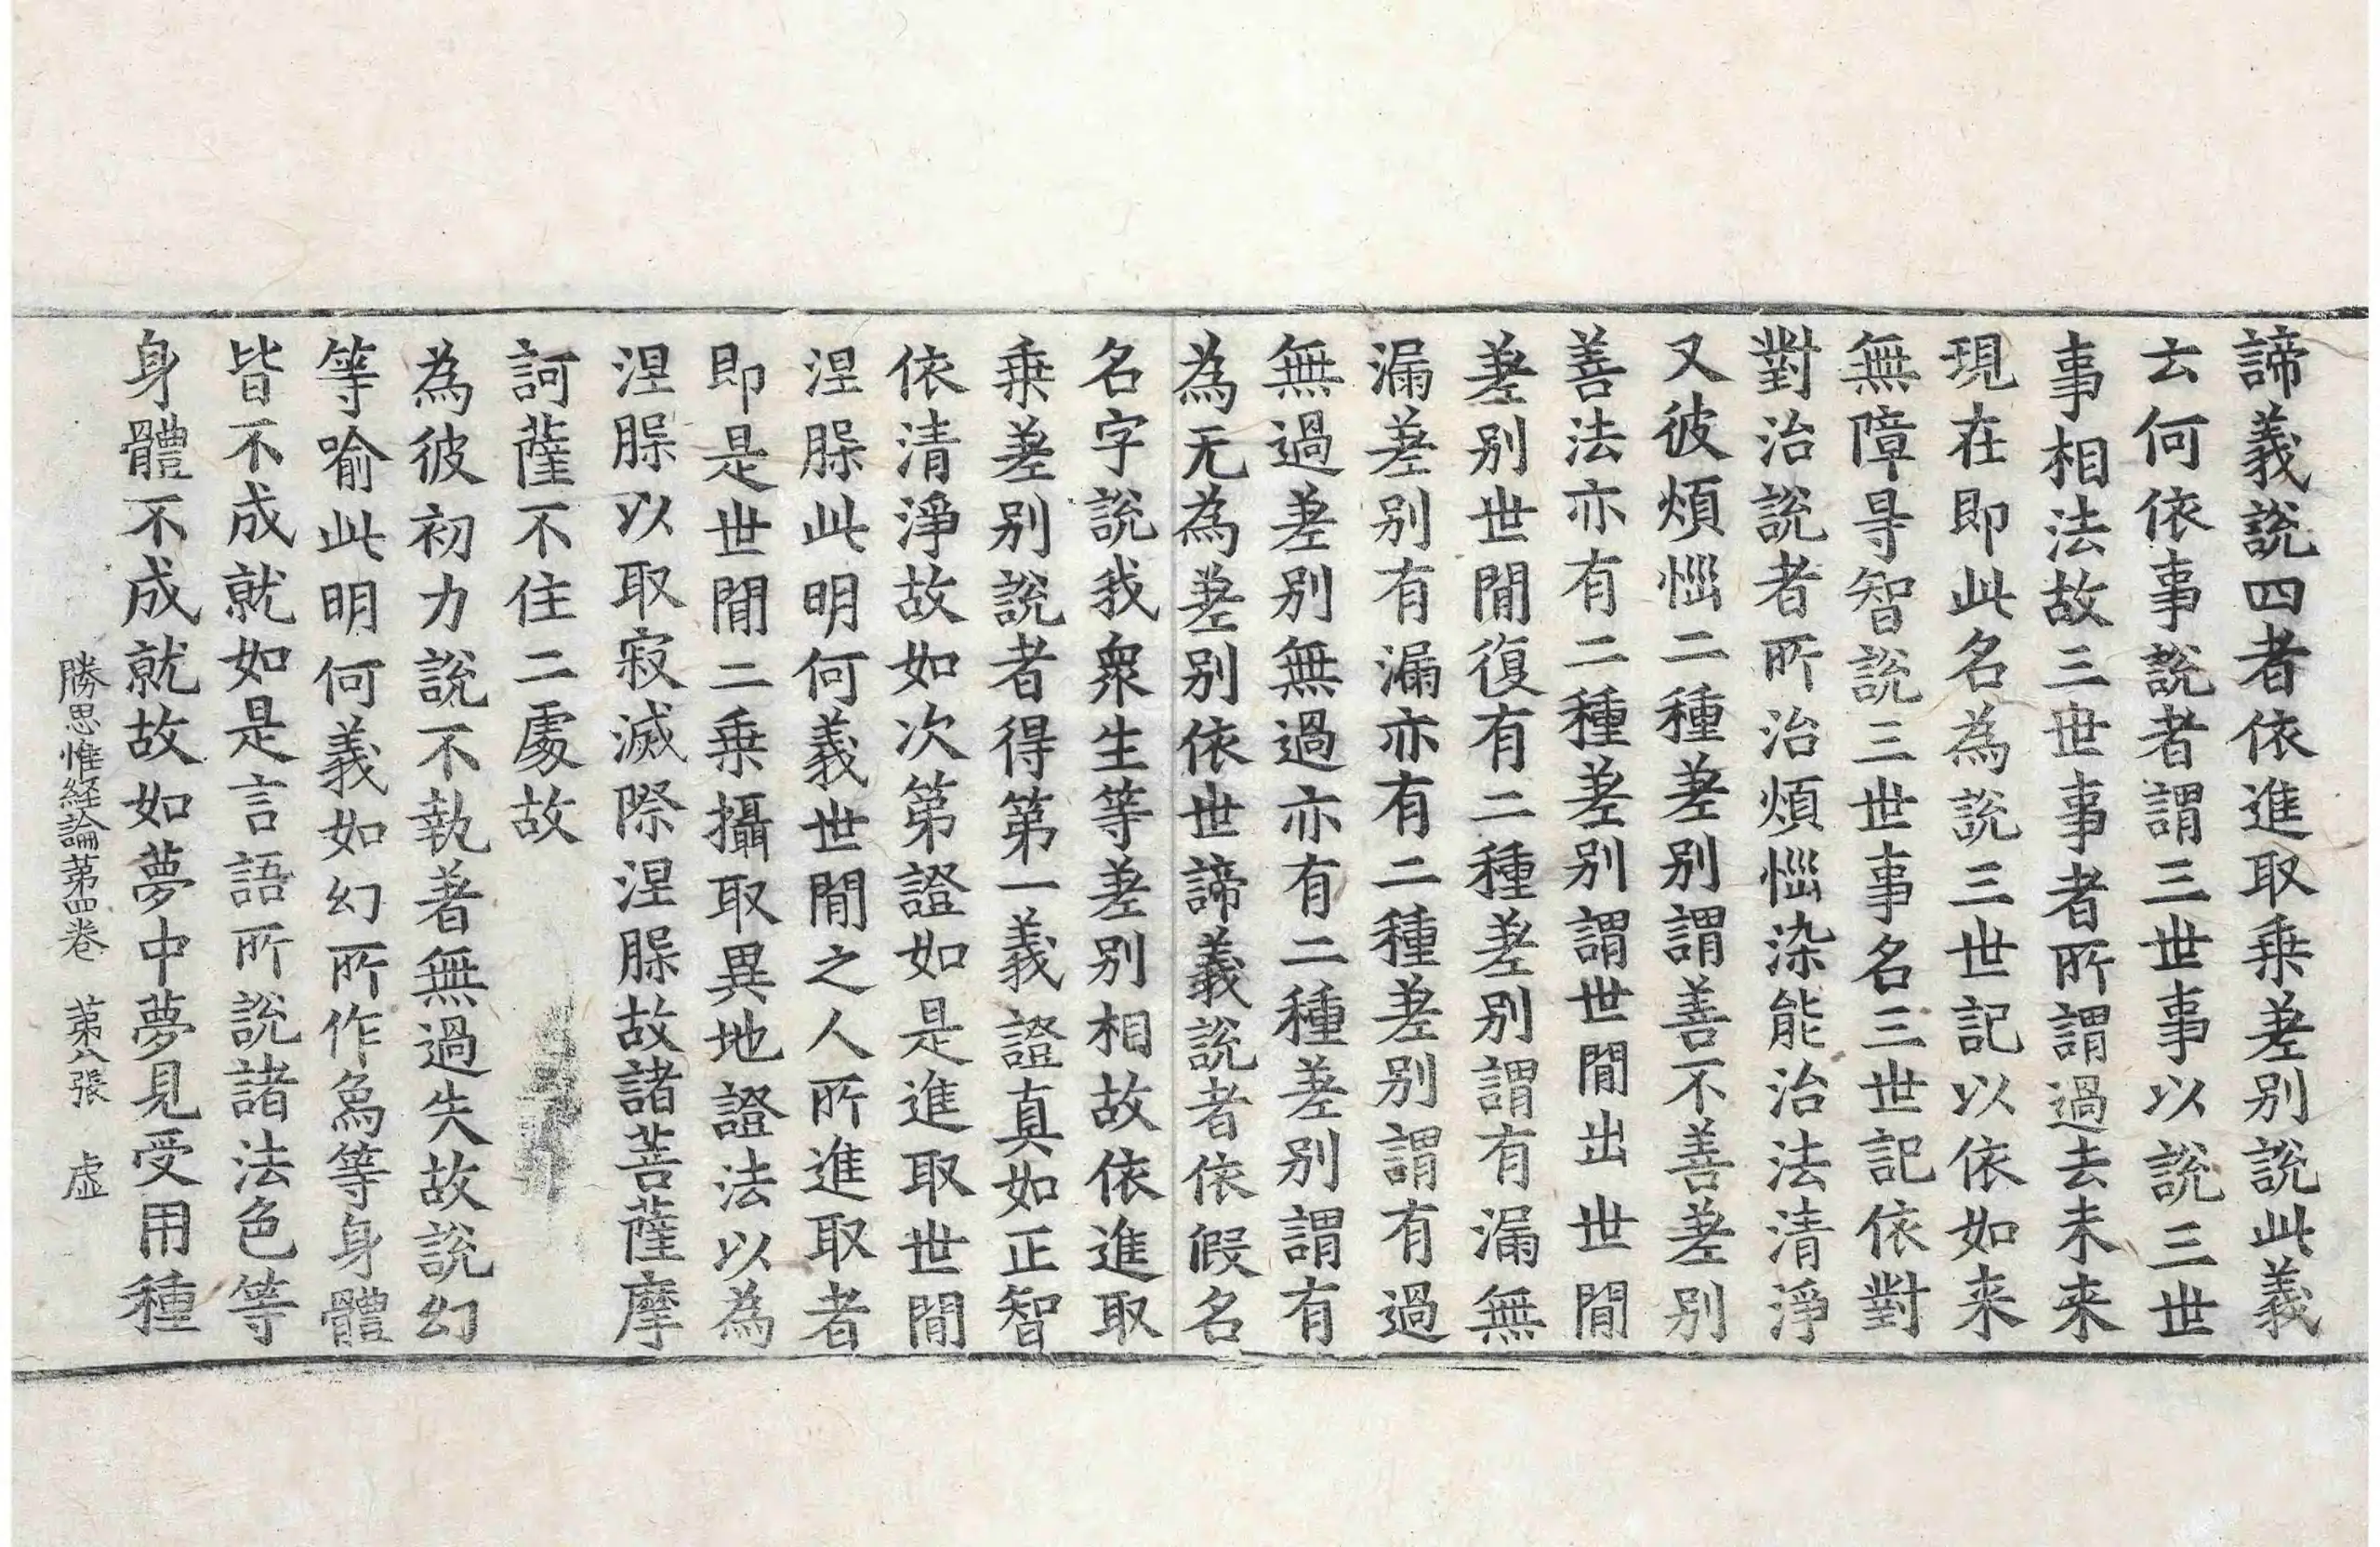 諦義說四者依進取乗差别說此義
云何依事說者謂三世事以說三世
事相法故三世事者所謂過去未来
現在即此名為說三世記以依如来
無障㝵智說三世事名三世記依對
對治說者所治煩惱染能治法清淨
又彼煩惱二種差别謂善不善差别
善法亦有二種差别謂世間出世間
差别世間復有二種差别謂有漏無
漏差别有漏亦有二種差别謂有過
無過差别無過亦有二種差别謂有
為无為差别依世諦義說者依假名
名字說我衆生等差别相故依進取
乗差别說者得第一義證真如正智
依清淨故如次第證如是進取世間
涅槃此明何義世間之人所進取者
即是世間二乗攝取異地證法以為
涅槃以取寂滅際涅槃故諸菩薩摩
訶薩不住二處故
為彼初力說不執著無過失故說幻
等喻此明何義如幻所作爲等身體
皆不成就如是言語所說諸法色等
身體不成就故如夢中夢見受用種
勝思惟経論第四卷　第八張　虛